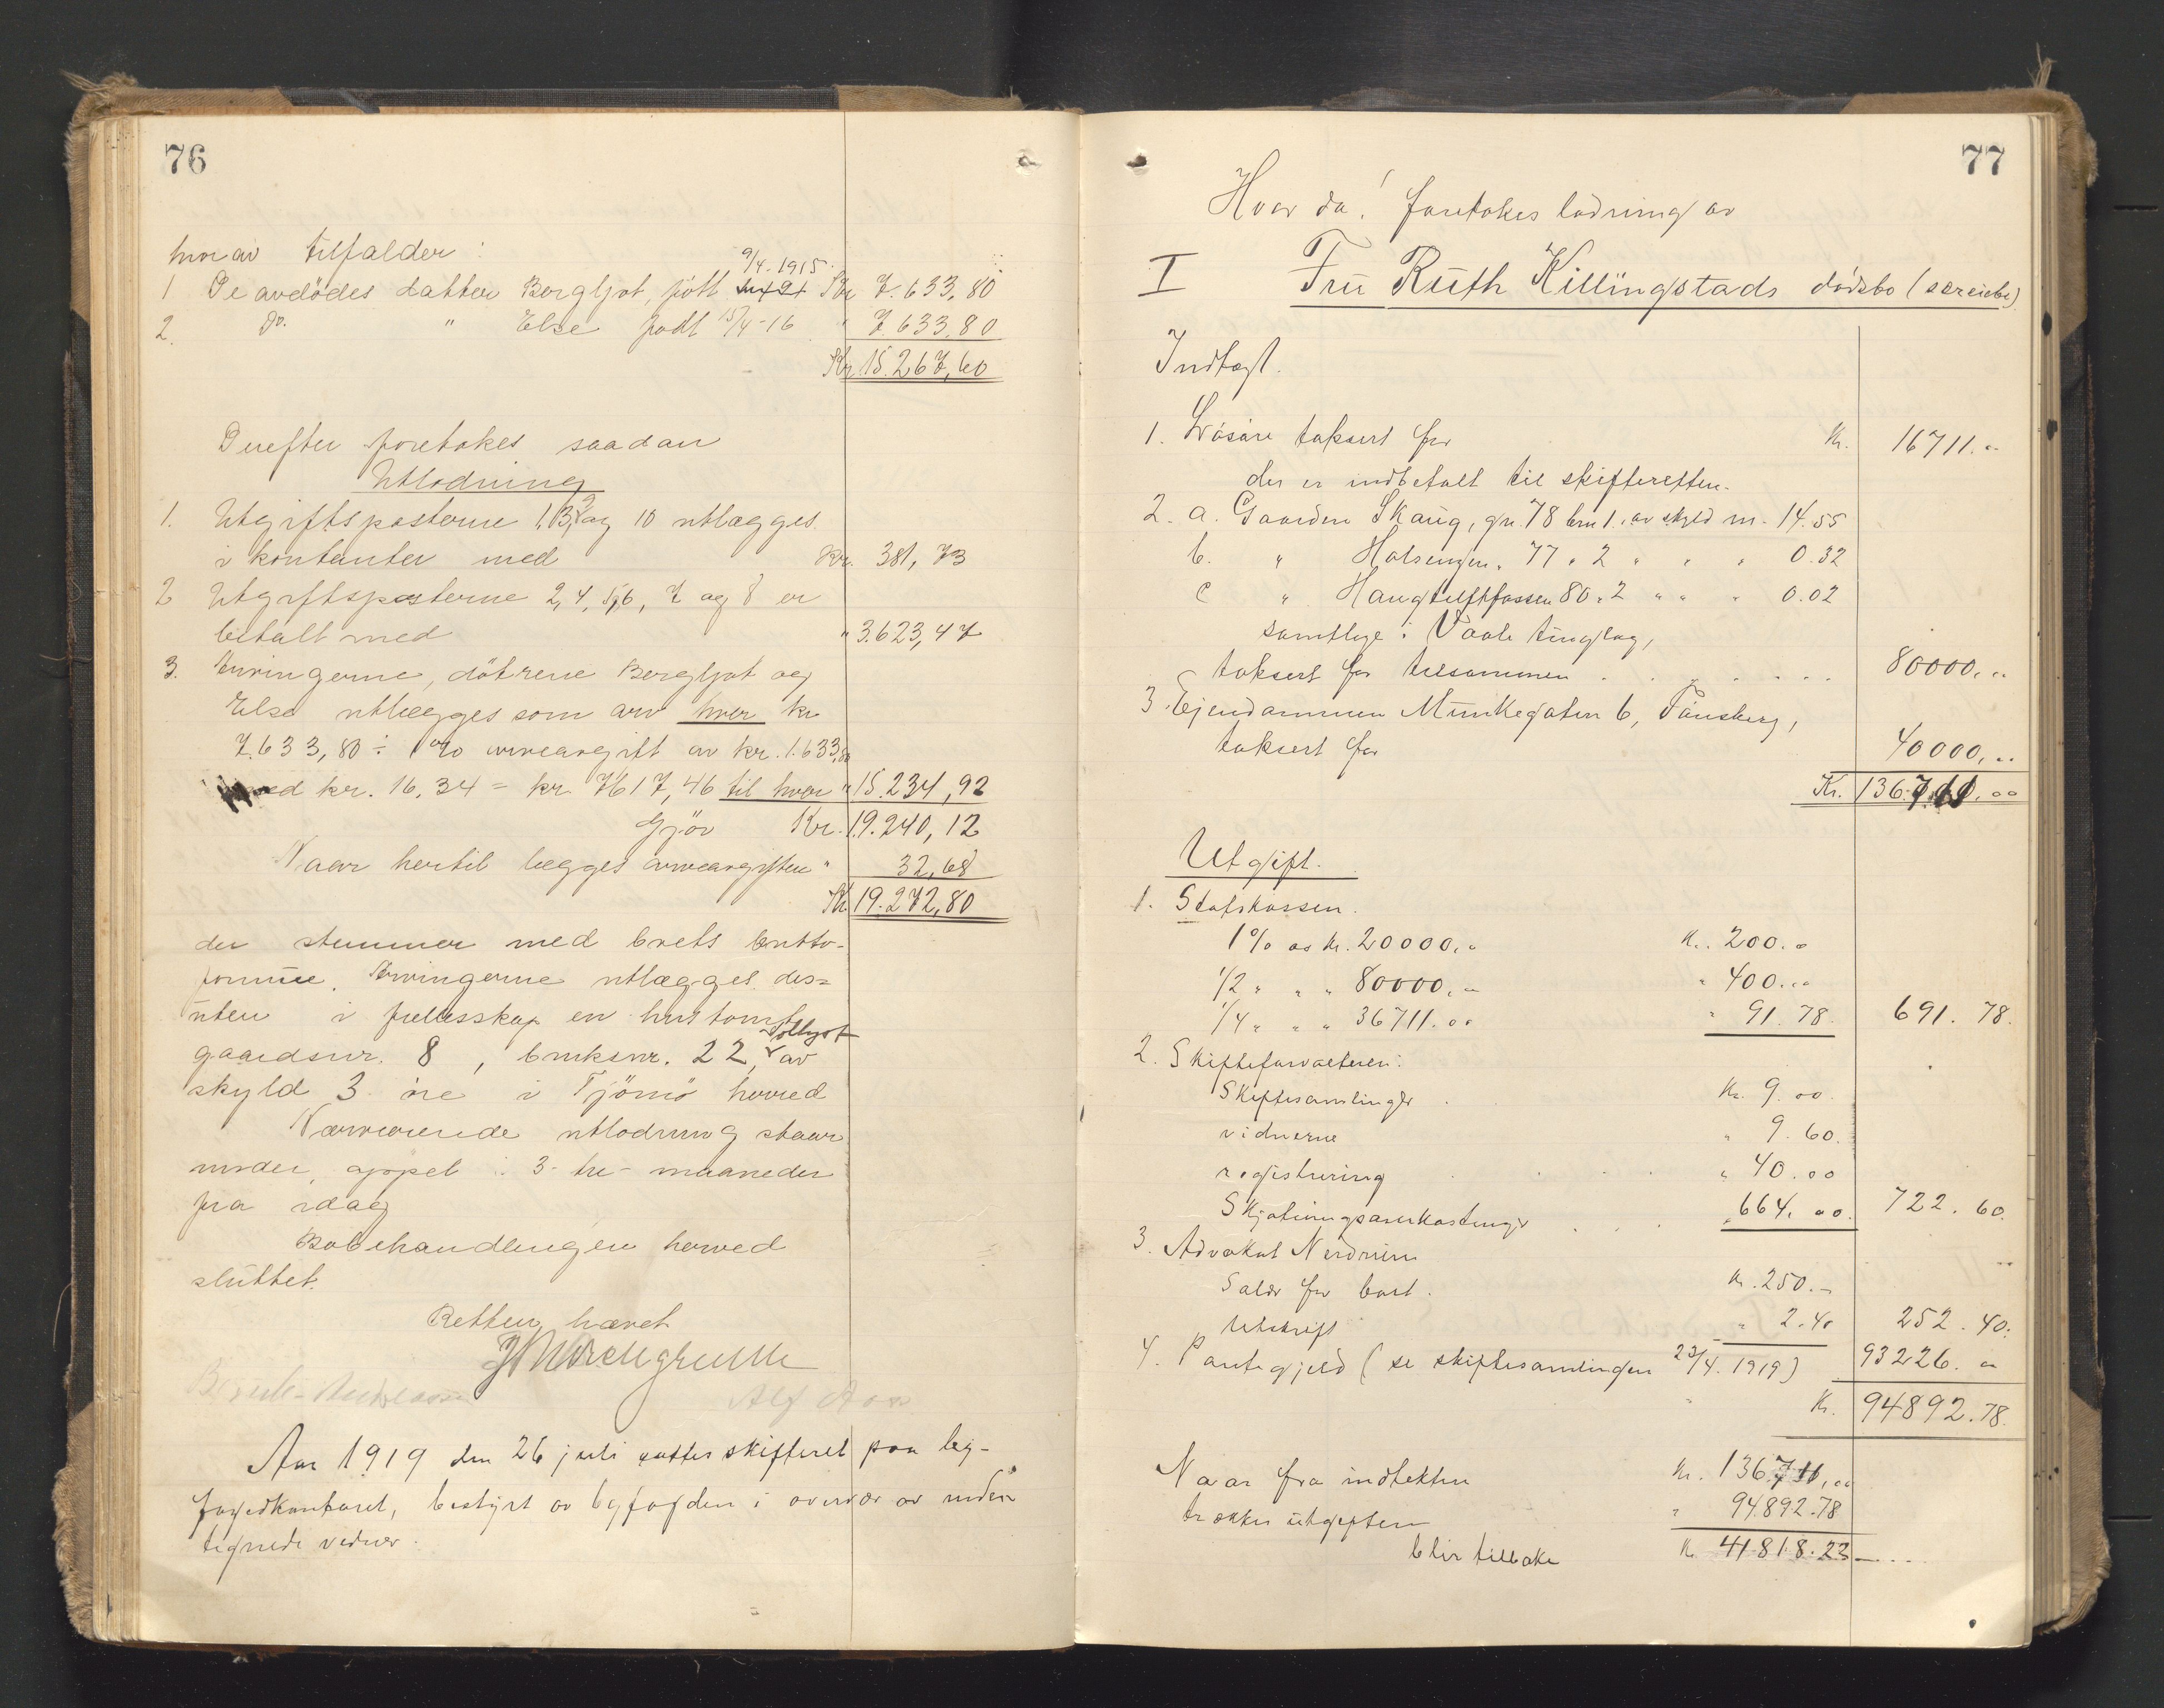 76
hvorav tilfalder:
9/4-1915
1 De avdödes datter Bergljot, född Kr 7.633,80
2. Do. " Else född 15/4-16 " 7.633.80
Kr 15.267,60
Derefter foretakes saadan
Utlodning
1. Utgiftsposterne 1, 3, 9 og 10 utlægges
i kontanter med Kr. 381,73
2 Utgiftsposterne 2, 4, 5, 6, 7 og 8 er
betalt med " 3.623,47
3. Arvingerne, dötrene Bergljot og
Else utlægges som arv hver kr
7.633,80 ÷ 1% arveavgift av kr. 1.633,80
med kr. 16,34 = kr. 7617,46 til hver " 15.234,92
Gjör Kr. 19.240,12
Naar hertil lægges arveavgiften " 32,68
Kr. 19.272,80
der stemmer med boets brutto-
formue. Arvingerne utlægges des=
uten i fællesskap en hustomt
Solbyst
gaardsnr. 8, bruksnr. 22, av
skyld 3 öre i Tjömö herred
Nærværende utlodning staar
under appel i 3-tre- maaneder
fra idag
Bobehandlingen herved
sluttet.
Retten hævet
Alf Aas
Aar 1919 den 26 juli sattes skifteret paa by-
fogedkontoret, bestyrt av byfogden i overvær av under-
tegnede vidner.
77
Hvor da! foretokes lodning av
I Fru Ruth Killingstads dödsbo (særeiebo)
Indtægt.
1. Lösöre taksert for Kr. 16711.00
der er indbetalt til skifteretten.
2. a. Gaarden Skaug, gn. 78 brn 1. av skyld m. 14.55
b. " Holsengen " 77 " 2 " " " 0.32
c " Haugtuftfossen 80 " 2 " " " 0.02
samtlige i Vaale tinglag,
taksert for tilsammen 80000,00
3. Eiendommen Munkegaten 6, Tönsberg,
taksert for 40000,00
Kr. 136.711.00
Utgift.
1. Statskassen.
1% av kr. 20000,00 Kr. 200.00
1/2 " " " 80000,00 " 400.00
1/4 " " " 36711.00 " 91.78 691.78.
2. Skifteforvalteren:
Skiftesamlinger Kr. 9.00
vidnerne " 9.60.
registrering " 40.00
Skjötningsomkostninger " 664.00. 722.60.
3. Advokat Nerdrum
Salær for boet. Kr. 250.-
Utskrift " 2.40 252.40.
4. Pantegjeld (se skiftesamlingen 23/4.1919) 93226.00
Kr. 94892.78.
Naar fra indtekten Kr. 136.711,00
trækkes utgiften " 94.892.78
blir tilbake Kr. 41818.23